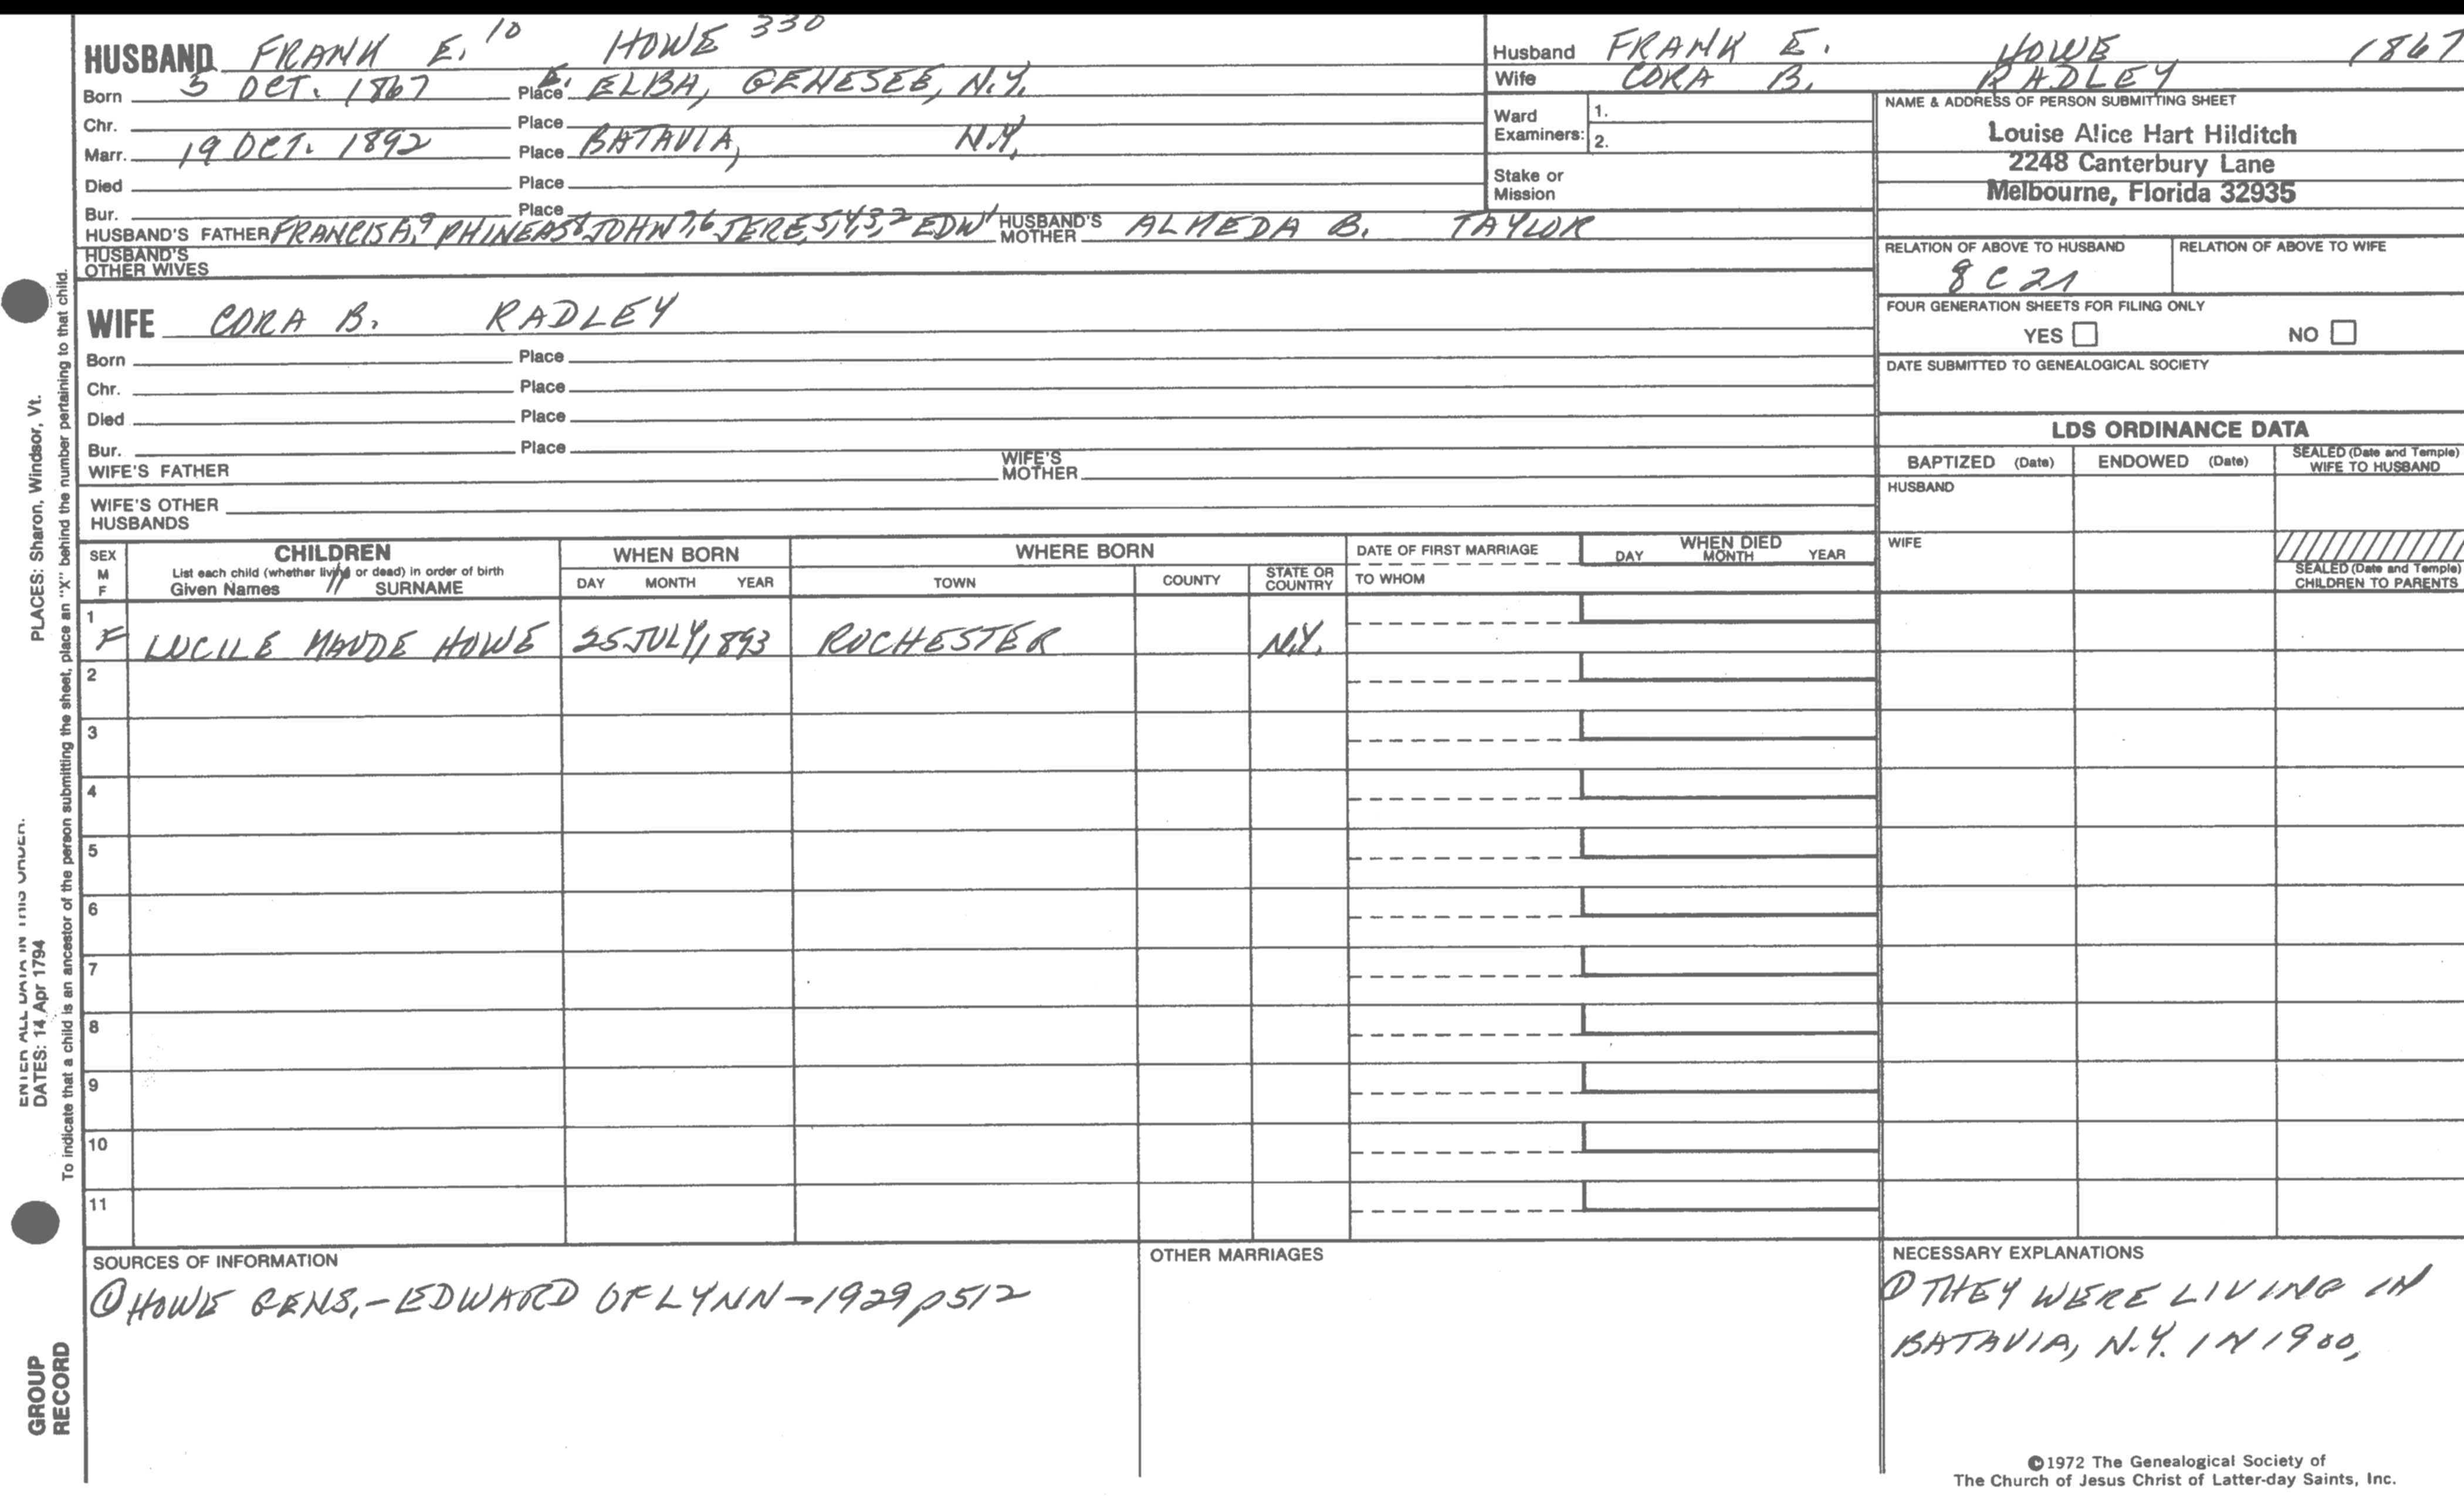 HUSBAND FRANK E. 10 HOWE 330
Born 5 OCT. 1867 Place E. ELBA, GENESEE, N.Y.
Chr. Place
Marr. 19 OCT. 1892 Place BATAVIA, N.Y.
Died Place
Bur. Place
HUSBAND'S FATHER FRANCIS A,9 PHINEAS8 JOHN7,6 JERE,5,4,3,2 EDW1 HUSBAND'S MOTHER ALMEDA B. TAYLOR
HUSBAND'S OTHER WIVES
WIFE CORA B. RADLEY
Born Place
Chr. Place
Died Place
Bur. Place
WIFE'S FATHER WIFE'S MOTHER
WIFE'S OTHER HUSBANDS
Husband FRANK E. HOWE 1867
Wife CORA B. RADLEY
Ward Examiners: 1. 2.
Stake or Mission
NAME & ADDRESS OF PERSON SUBMITTING SHEET
Louise Alice Hart Hilditch
2248 Canterbury Lane
Melbourne, Florida 32935
RELATION OF ABOVE TO HUSBAND RELATION OF ABOVE TO WIFE
8 C 2r
FOUR GENERATION SHEETS FOR FILING ONLY
YES NO
DATE SUBMITTED TO GENEALOGICAL SOCIETY
LDS ORDINANCE DATA
BAPTIZED (Date) ENDOWED (Date) SEALED (Date and Temple) WIFE TO HUSBAND
HUSBAND
WIFE
SEALED (Date and Temple) CHILDREN TO PARENTS
SEX M F
CHILDREN
List each child (whether living or dead) in order of birth
Given Names SURNAME
WHEN BORN
DAY MONTH YEAR
WHERE BORN
TOWN COUNTY STATE OR COUNTRY
DATE OF FIRST MARRIAGE
TO WHOM
WHEN DIED
DAY MONTH YEAR
1 F LUCILE MAUDE HOWE 25 JULY, 1893 ROCHESTER N.Y.
2
3
4
5
6
7
8
9
10
11
SOURCES OF INFORMATION
① HOWE GENS,-EDWARD OF LYNN-1929 p512
OTHER MARRIAGES
NECESSARY EXPLANATIONS
① THEY WERE LIVING IN
BATAVIA, N.Y. IN 1900,
©1972 The Genealogical Society of
The Church of Jesus Christ of Latter-day Saints, Inc.
GROUP
RECORD
ENTER ALL DATA IN THIS ORDER.
DATES: 14 Apr 1794
PLACES: Sharon, Windsor, Vt.
To indicate that a child is an ancestor of the person submitting the sheet, place an "X" behind the number pertaining to that child.